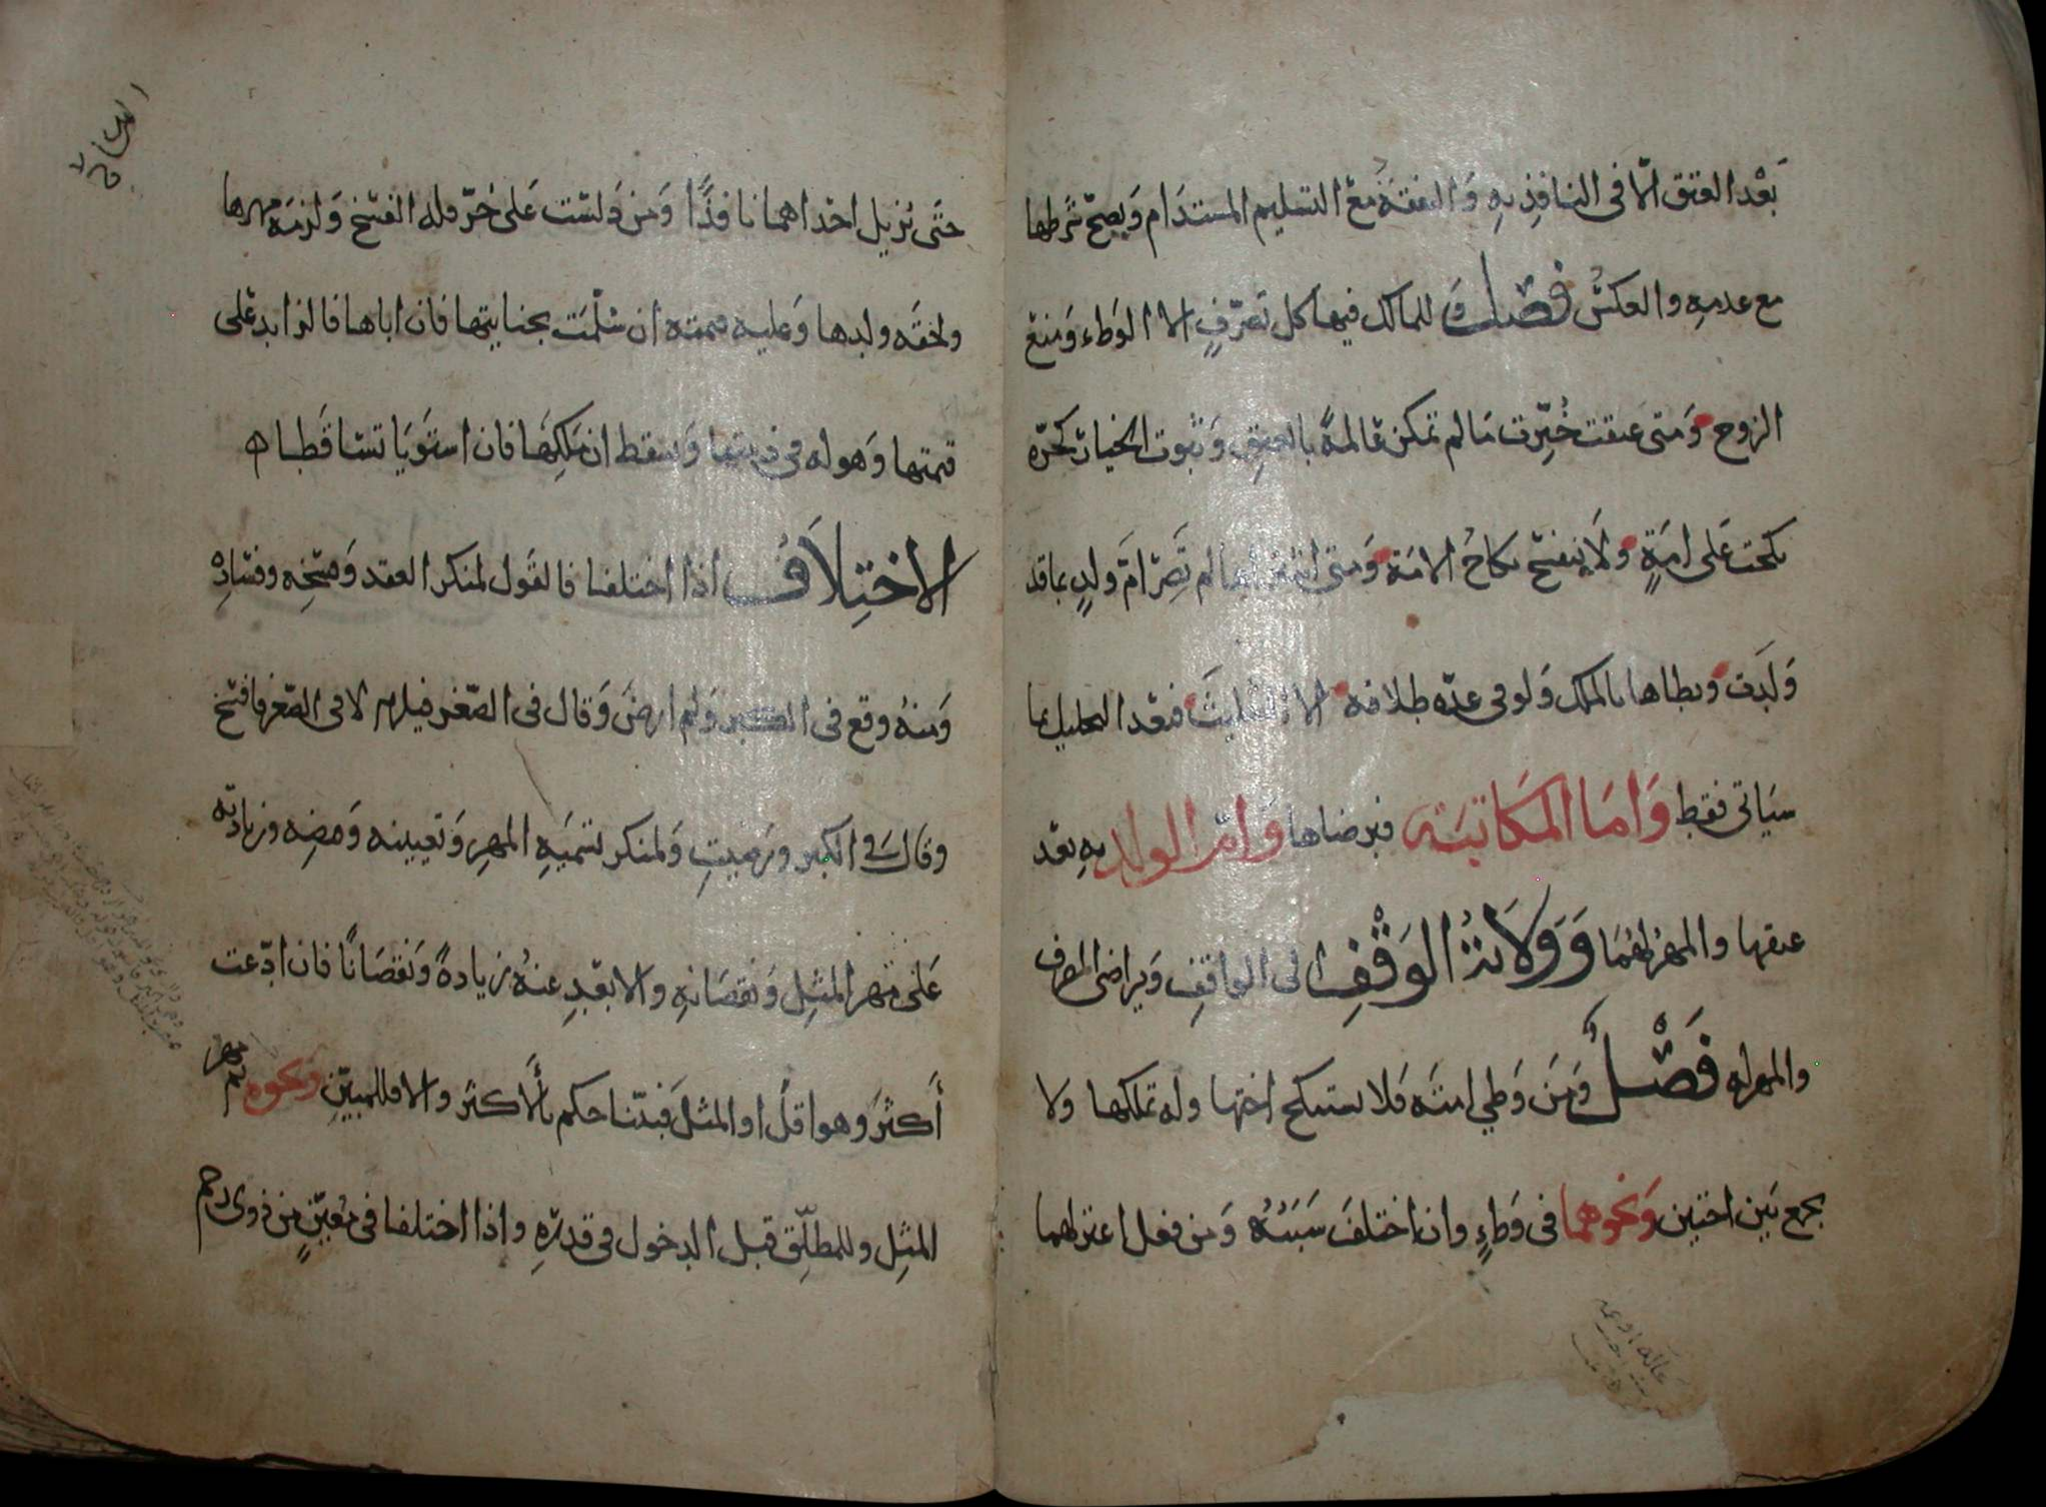 بَعْد العتق الّا في النافذ بهِ وَ النفقَة مَعَ التسليم المستدَام وَيصحّ شَرطها
مع عدمهِ والعكسُ فصل وَ للمالك فيها كل تصَرّفٍ الا الوَطء وَمنعَ
الزوج وَمتى عتقت خُيِّرت مَا لم تمكن عَالمةً بالعتقِ وَ ثبُوت الخيار كحرّه
نكحت عَلى امَةٍ وَلا ينفسخ نكاحُ الامَة وَمتى اشترَاها لم تَصِرْ امّ ولدٍ بما قد
وَلَدَت وَيطاها بالملك وَلو في عدّه طلاقه الا التثليثَ فبَعْد التحليل بما
سيَاتى فقط وَامَا المكَاتبَة فبرضاها وَامّ الولد بهِ بعْد
عتقها والمهرُ لهُمَا وَوَلَايَةُ الوَقْفِ الى الواقفِ وَيراضى المصرف
والمهر له فَصْلٌ وَمَن وَطي امتَه فَلا يستنكح اختها وله تملكها وَلا
يجمع بَين اختين وَنحوهما في وَطءٍ وان اختلفَ سَبَبُهُ وَمن فعل اعتزلهما
حتّى يُزيل احْداهما نافذًا وَمن دَلسَت عَلى حُرّ فله الفسْخ وَلزمَه مهرها
ولحقَه ولدها وَعليه قيمته ان سُلّمَت بجنايتها فان اباها فالزايد عَلى
قيمتها وَهو له في ذمتها وَيسقط ان مَلكهَا فان استَوَيَا تسَاقَطا
الاختِلَافُ اذا اختلفا فالقَول لمنكر العقد وَفسْخِه وفسَادِه
وَمنهُ وقع في الكبر وَلم ارضَ وَقال في الصّغر فيلزم لا في الصّغر فافسخ
وقال في الكبر ورَضيتِ وَلمنكر تسْميَةِ المهرِ وَتعيينه وَقبضِه وَزيادته
عَلى مَهر المثلِ وَنقصَانهِ والابعَدِ عنهُ زيادةً وَنقصَانًا فان ادّعت
أَكثرَ وَهو اقلَّ او المثلَ فبيّنا حكم بالأكثرَ والا فللمبيّن وَنحوه ثم مهر
المثِلِ وللمطلّقِ قبل الدخول في قدْرهِ واذا اختلفا في مُعيّنٍ من ذوى رحم